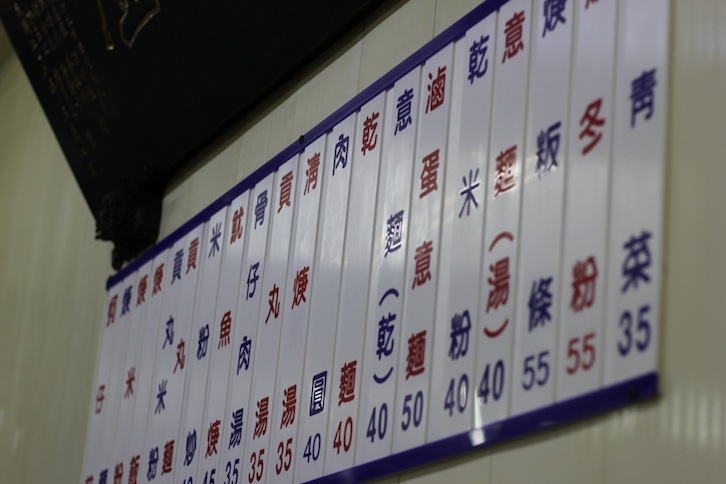 青菜35
冬粉55
焿粄條55
意麵(湯)40
乾米粉40
滷蛋意麵50
意麵(乾)40
乾麵40
肉圓40
清焿湯35
貢丸湯35
骨仔肉湯35
魷魚焿
米粉炒
貢丸麵
貢丸米粉